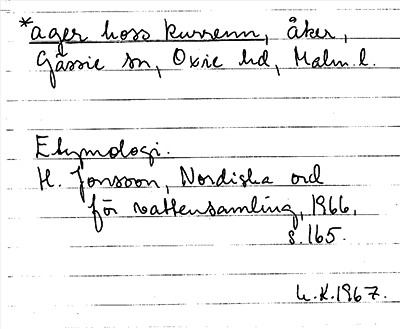 *ager hoss kurrenn, åker,
Gässie sn, Oxie hd, Malm.l.
Etymologi.
H. Jonsson, Nordiska ord
för vattensamling, 1966,
s.165.
L.K.1967.